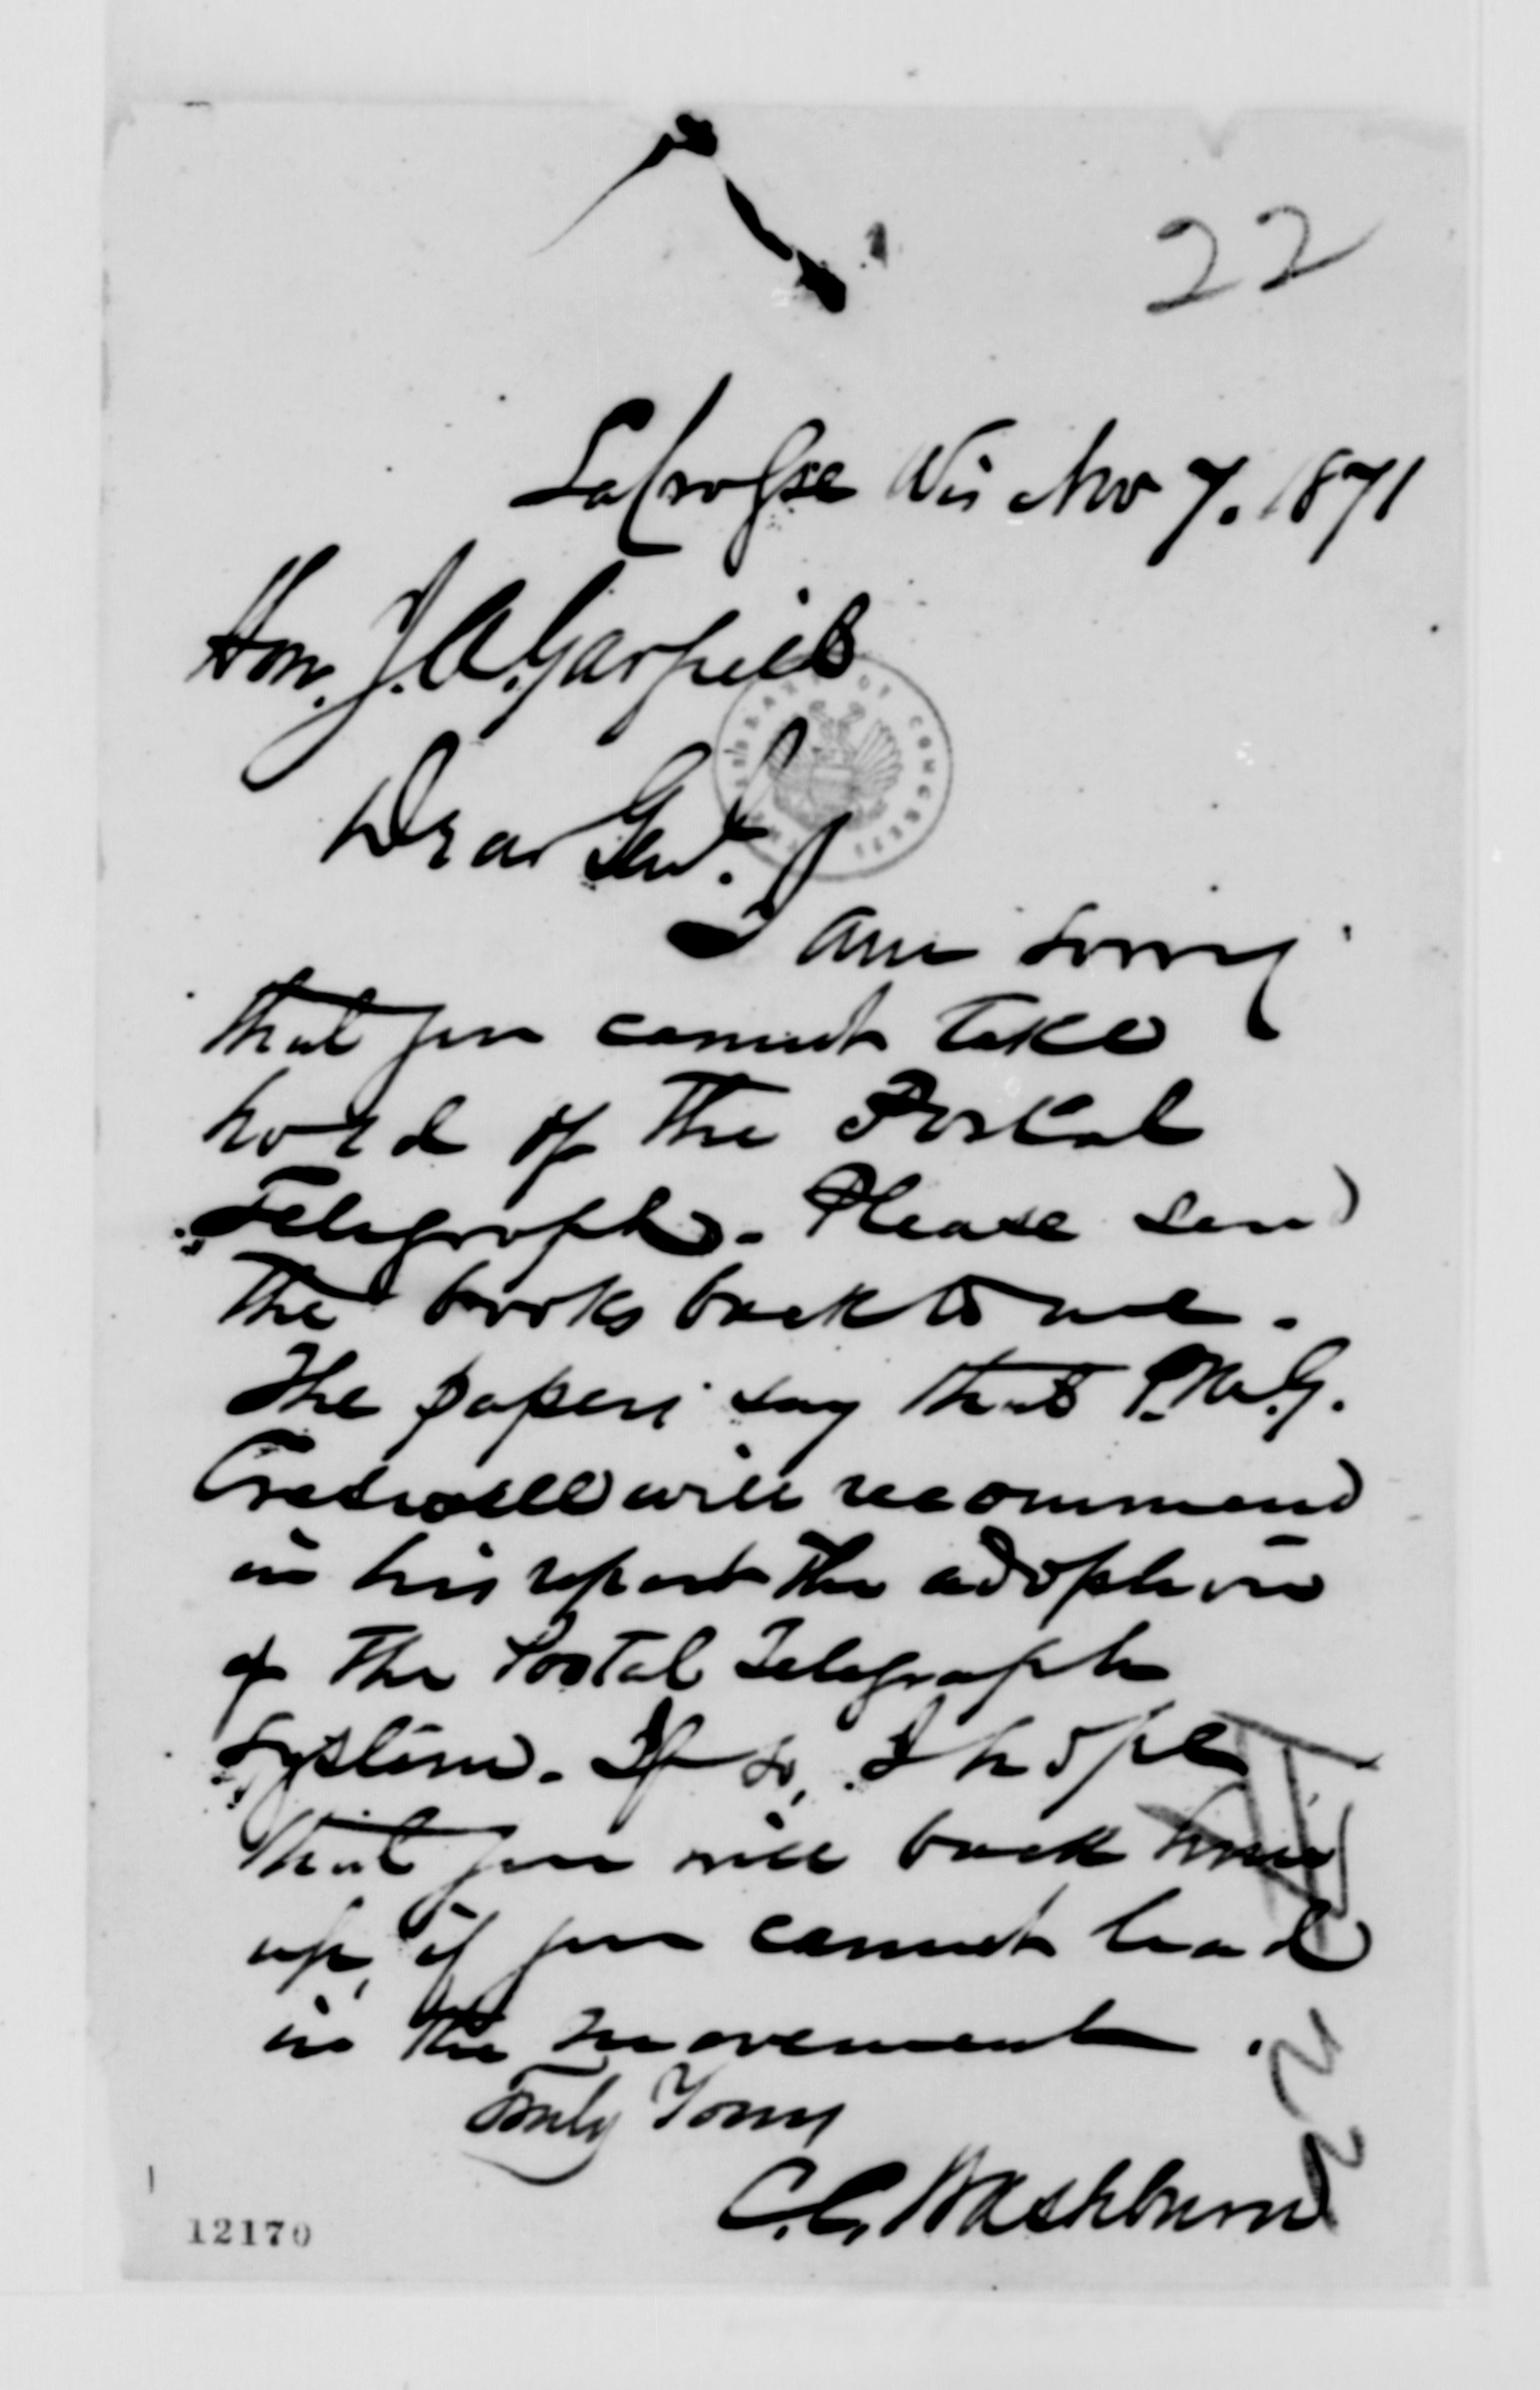 22
LaCrosse Wis Nov 7. 1871
Hon. J. A. Garfield
Dear Genl.
I am sorry
that you cannot take
hold of the Postal
Telegraph. Please send
the books back to me.
The papers say that P.M.G.
Creswell will recommend
in his report the adoption
of the Postal Telegraph
System. If so, I hope
that you will back him
up, if you cannot lead
in the movement.
Truly Yours
C. C. Washburn
22
12170
LIBRARY OF CONGRESS